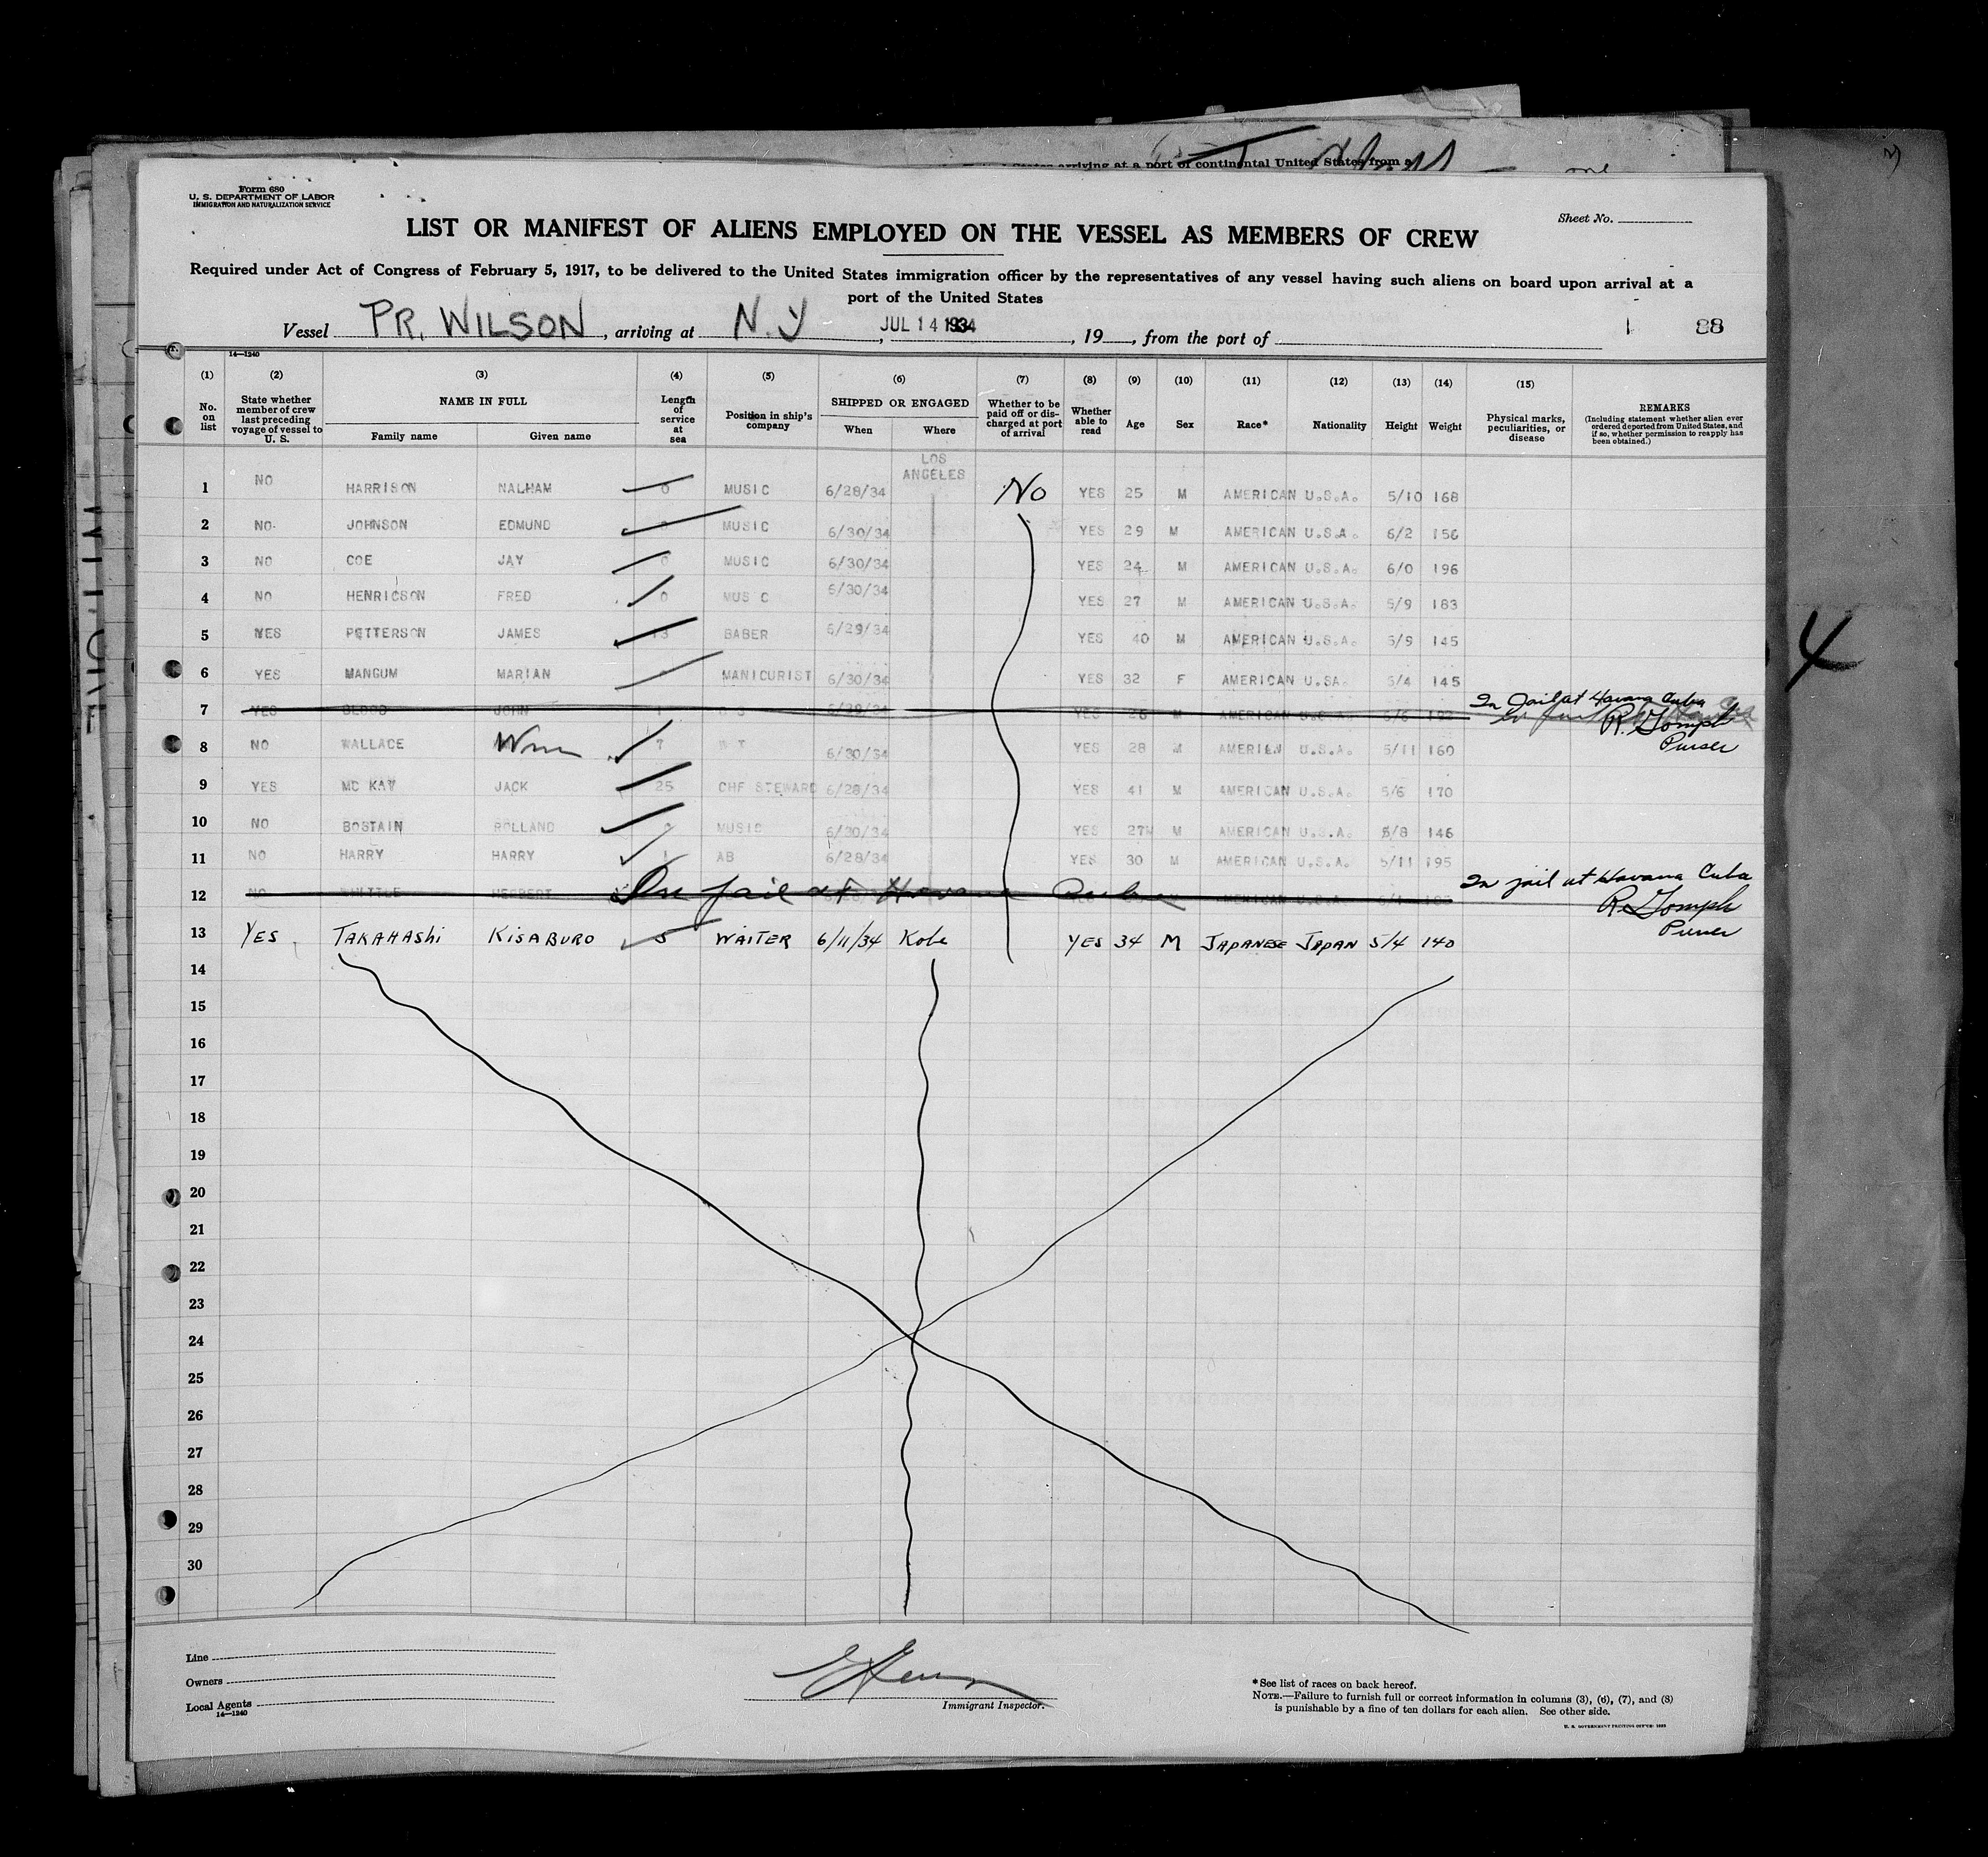 arriving at a port of continental United States from a
Form 680
U. S. DEPARTMENT OF LABOR
IMMIGRATION AND NATURALIZATION SERVICE
Sheet No.
LIST OR MANIFEST OF ALIENS EMPLOYED ON THE VESSEL AS MEMBERS OF CREW
Required under Act of Congress of February 5, 1917, to be delivered to the United States immigration officer by the representatives of any vessel having such aliens on board upon arrival at a
port of the United States
Vessel PR. WILSON, arriving at N.Y, JUL 14 1934, 19__, from the port of 1 88
14—1240
(1) (2) (3) (4) (5) (6) (7) (8) (9) (10) (11) (12) (13) (14) (15)
No. on list
State whether member of crew last preceding voyage of vessel to U. S.
NAME IN FULL
Family name Given name
Length of service at sea
Position in ship's company
SHIPPED OR ENGAGED
When Where
Whether to be paid off or discharged at port of arrival
Whether able to read
Age
Sex
Race*
Nationality
Height
Weight
Physical marks, peculiarities, or disease
REMARKS
(Including statement whether alien ever ordered deported from United States, and if so, whether permission to reapply has been obtained.)
1 NO HARRISON NALHAM 0 MUSIC 6/28/34 LOS ANGELES No YES 25 M AMERICAN U.S.A. 5/10 168
2 NO JOHNSON EDMUND MUSIC 6/30/34 YES 29 M AMERICAN U.S.A. 6/2 156
3 NO COE JAY 0 MUSIC 6/30/34 YES 24 M AMERICAN U.S.A. 6/0 196
4 NO HENRICSON FRED 0 MUS C 6/30/34 YES 27 M AMERICAN U.S.A. 5/9 183
5 YES PETTERSON JAMES 13 BABER 6/29/34 YES 40 M AMERICAN U.S.A. 5/9 145
6 YES MANGUM MARIAN MANICURIST 6/30/34 YES 32 F AMERICAN U.SA. 5/4 145
7 YES BLOOD JOHN YES M AMERICAN U.S.A. In Jail at Havana Cuba
R. Gomph
Purser
8 NO WALLACE Wm 7 6/30/34 YES 28 M AMERICN U.S.A. 5/11 160
9 YES MC KAY JACK 25 CHF STEWARD 6/28/34 YES 41 M AMERICAN U.S.A. 5/6 170
10 NO BOSTAIN ROLLAND MUSIC 6/30/34 YES 27 M AMERICAN U.S.A. 5/8 146
11 NO HARRY HARRY 1 AB 6/28/34 YES 30 M AMERICAN U.S.A. 5/11 195
12 NO HERBERT In jail at Havana Cuba AMERICAN U.S.A. In jail at Havana Cuba
R. Gomph
Purser
13 YES TAKAHASHI KISABURO 5 WAITER 6/11/34 Kobe YES 34 M JAPANESE JAPAN 5/4 140
14
15
16
17
18
19
20
21
22
23
24
25
26
27
28
29
30
Line
Owners
Local Agents
14—1240
Immigrant Inspector.
*See list of races on back hereof.
NOTE.—Failure to furnish full or correct information in columns (3), (6), (7), and (8)
is punishable by a fine of ten dollars for each alien. See other side.
U. S. GOVERNMENT PRINTING OFFICE: 1933
4